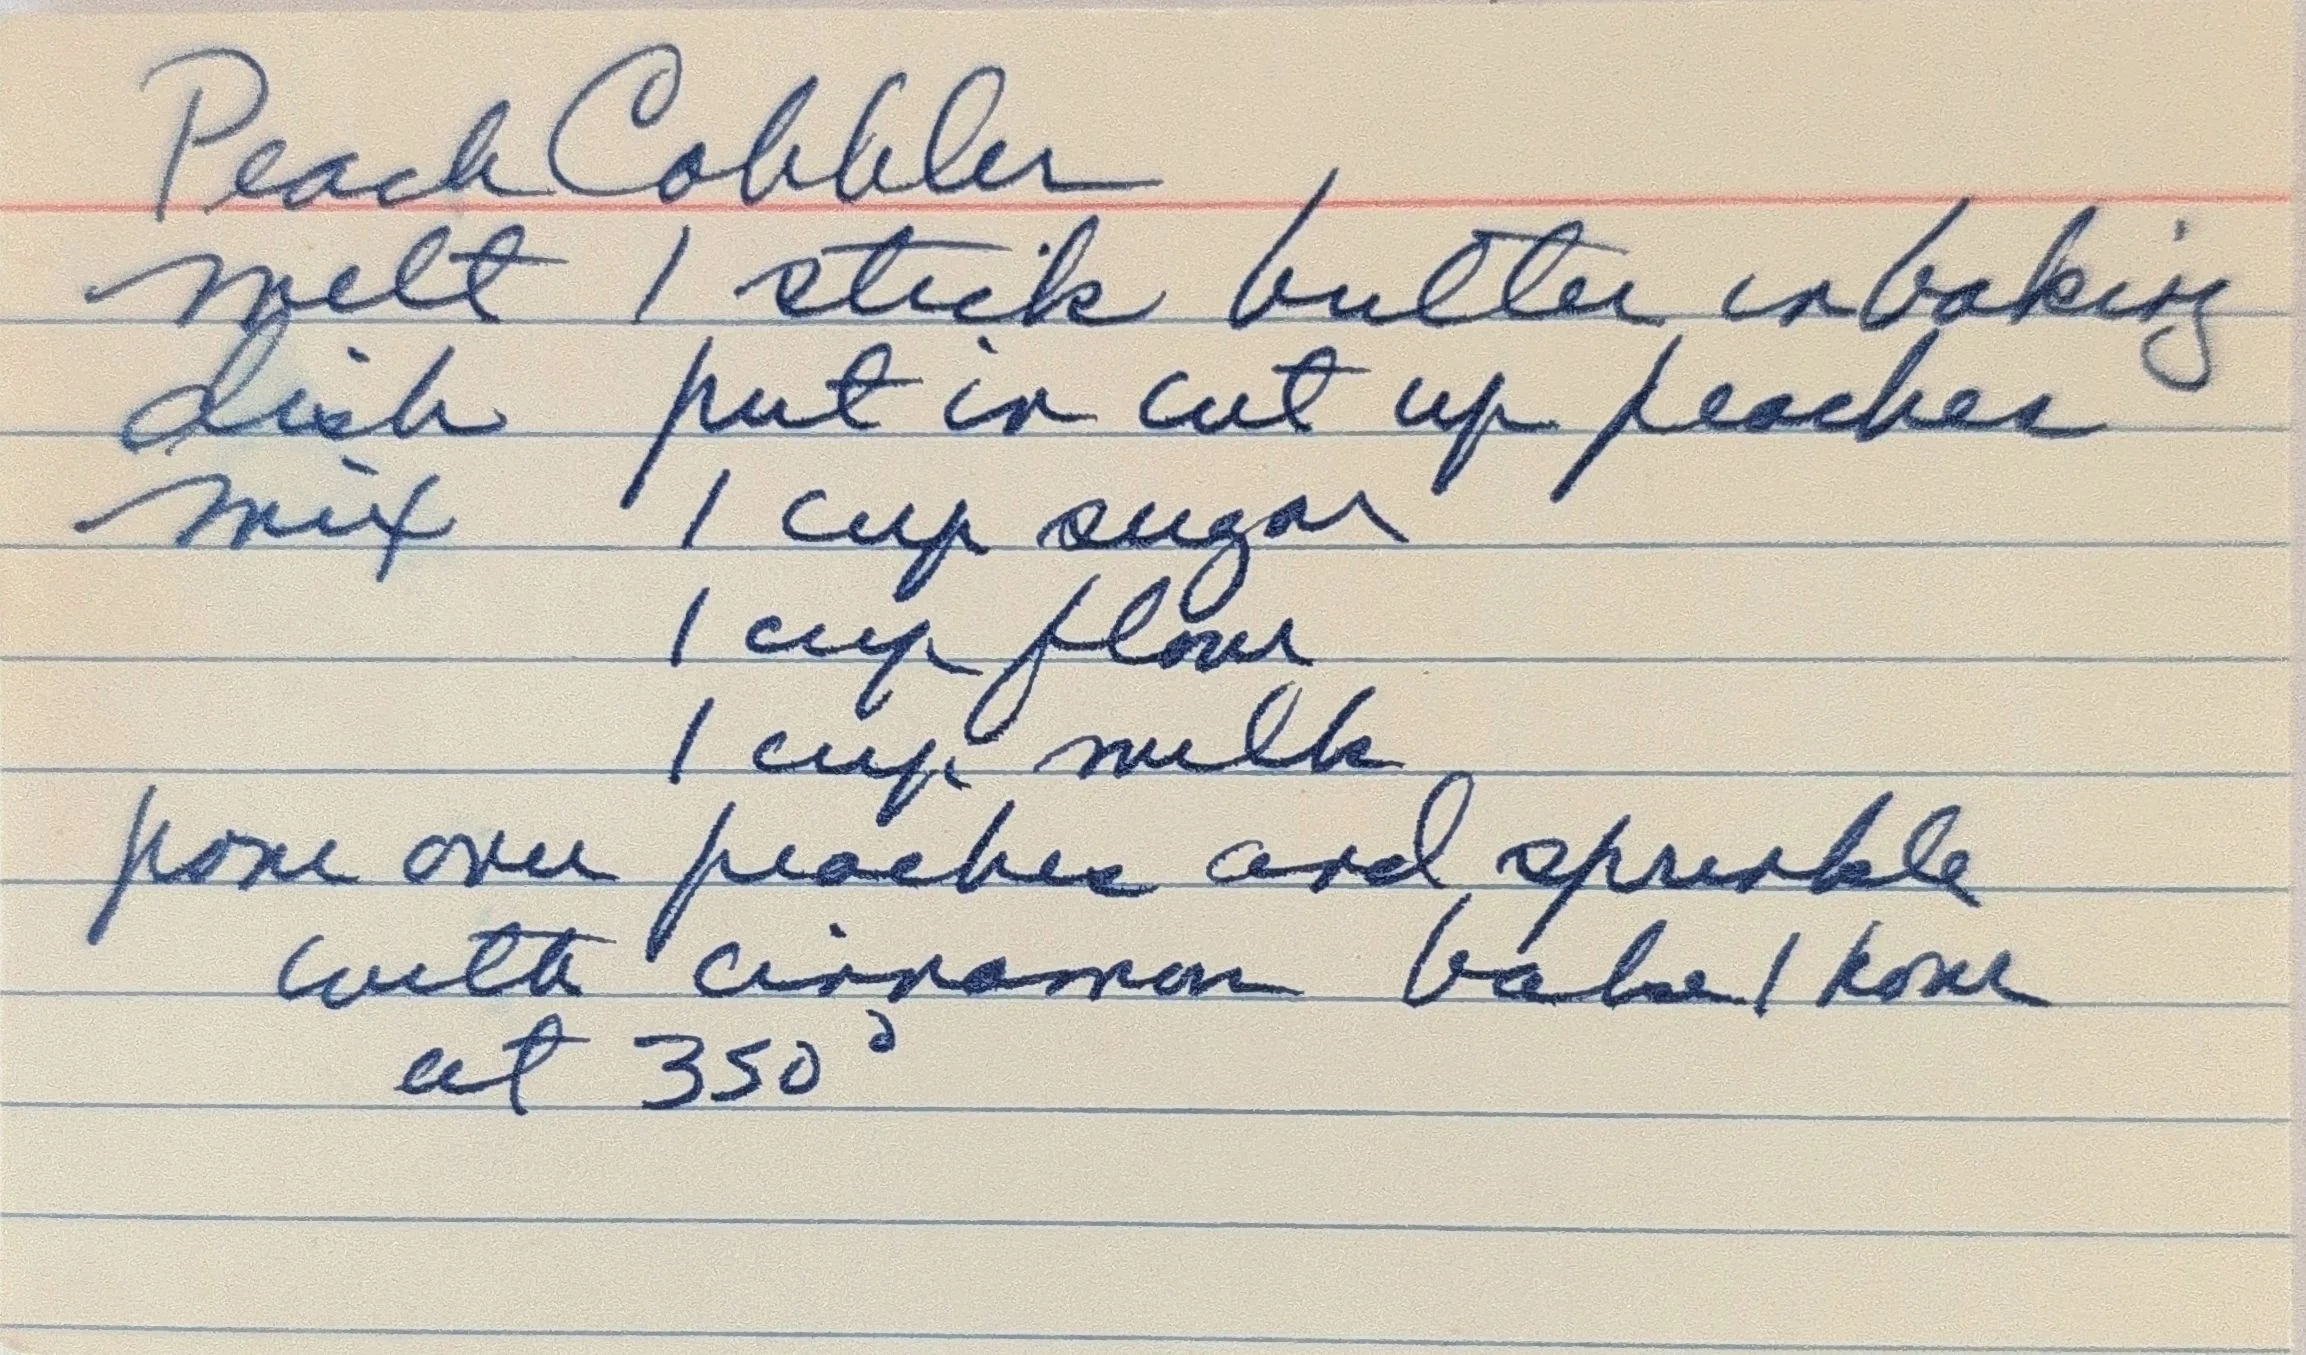 Peach Cobbler
melt 1 stick butter in baking
dish put in cut up peaches
mix 1 cup sugar
1 cup flour
1 cup milk
pour over peaches and sprinkle
with cinnamon bake 1 hour
at 350°